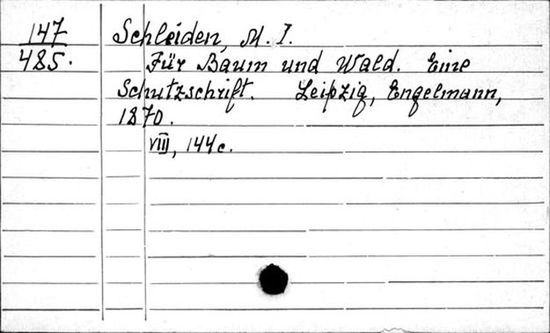 147 Schleiden, M. I.
485. Für Baum und Wald. Eine
Schutzschrift. Leipzig, Engelmann,
1870.
VIII, 144 c.